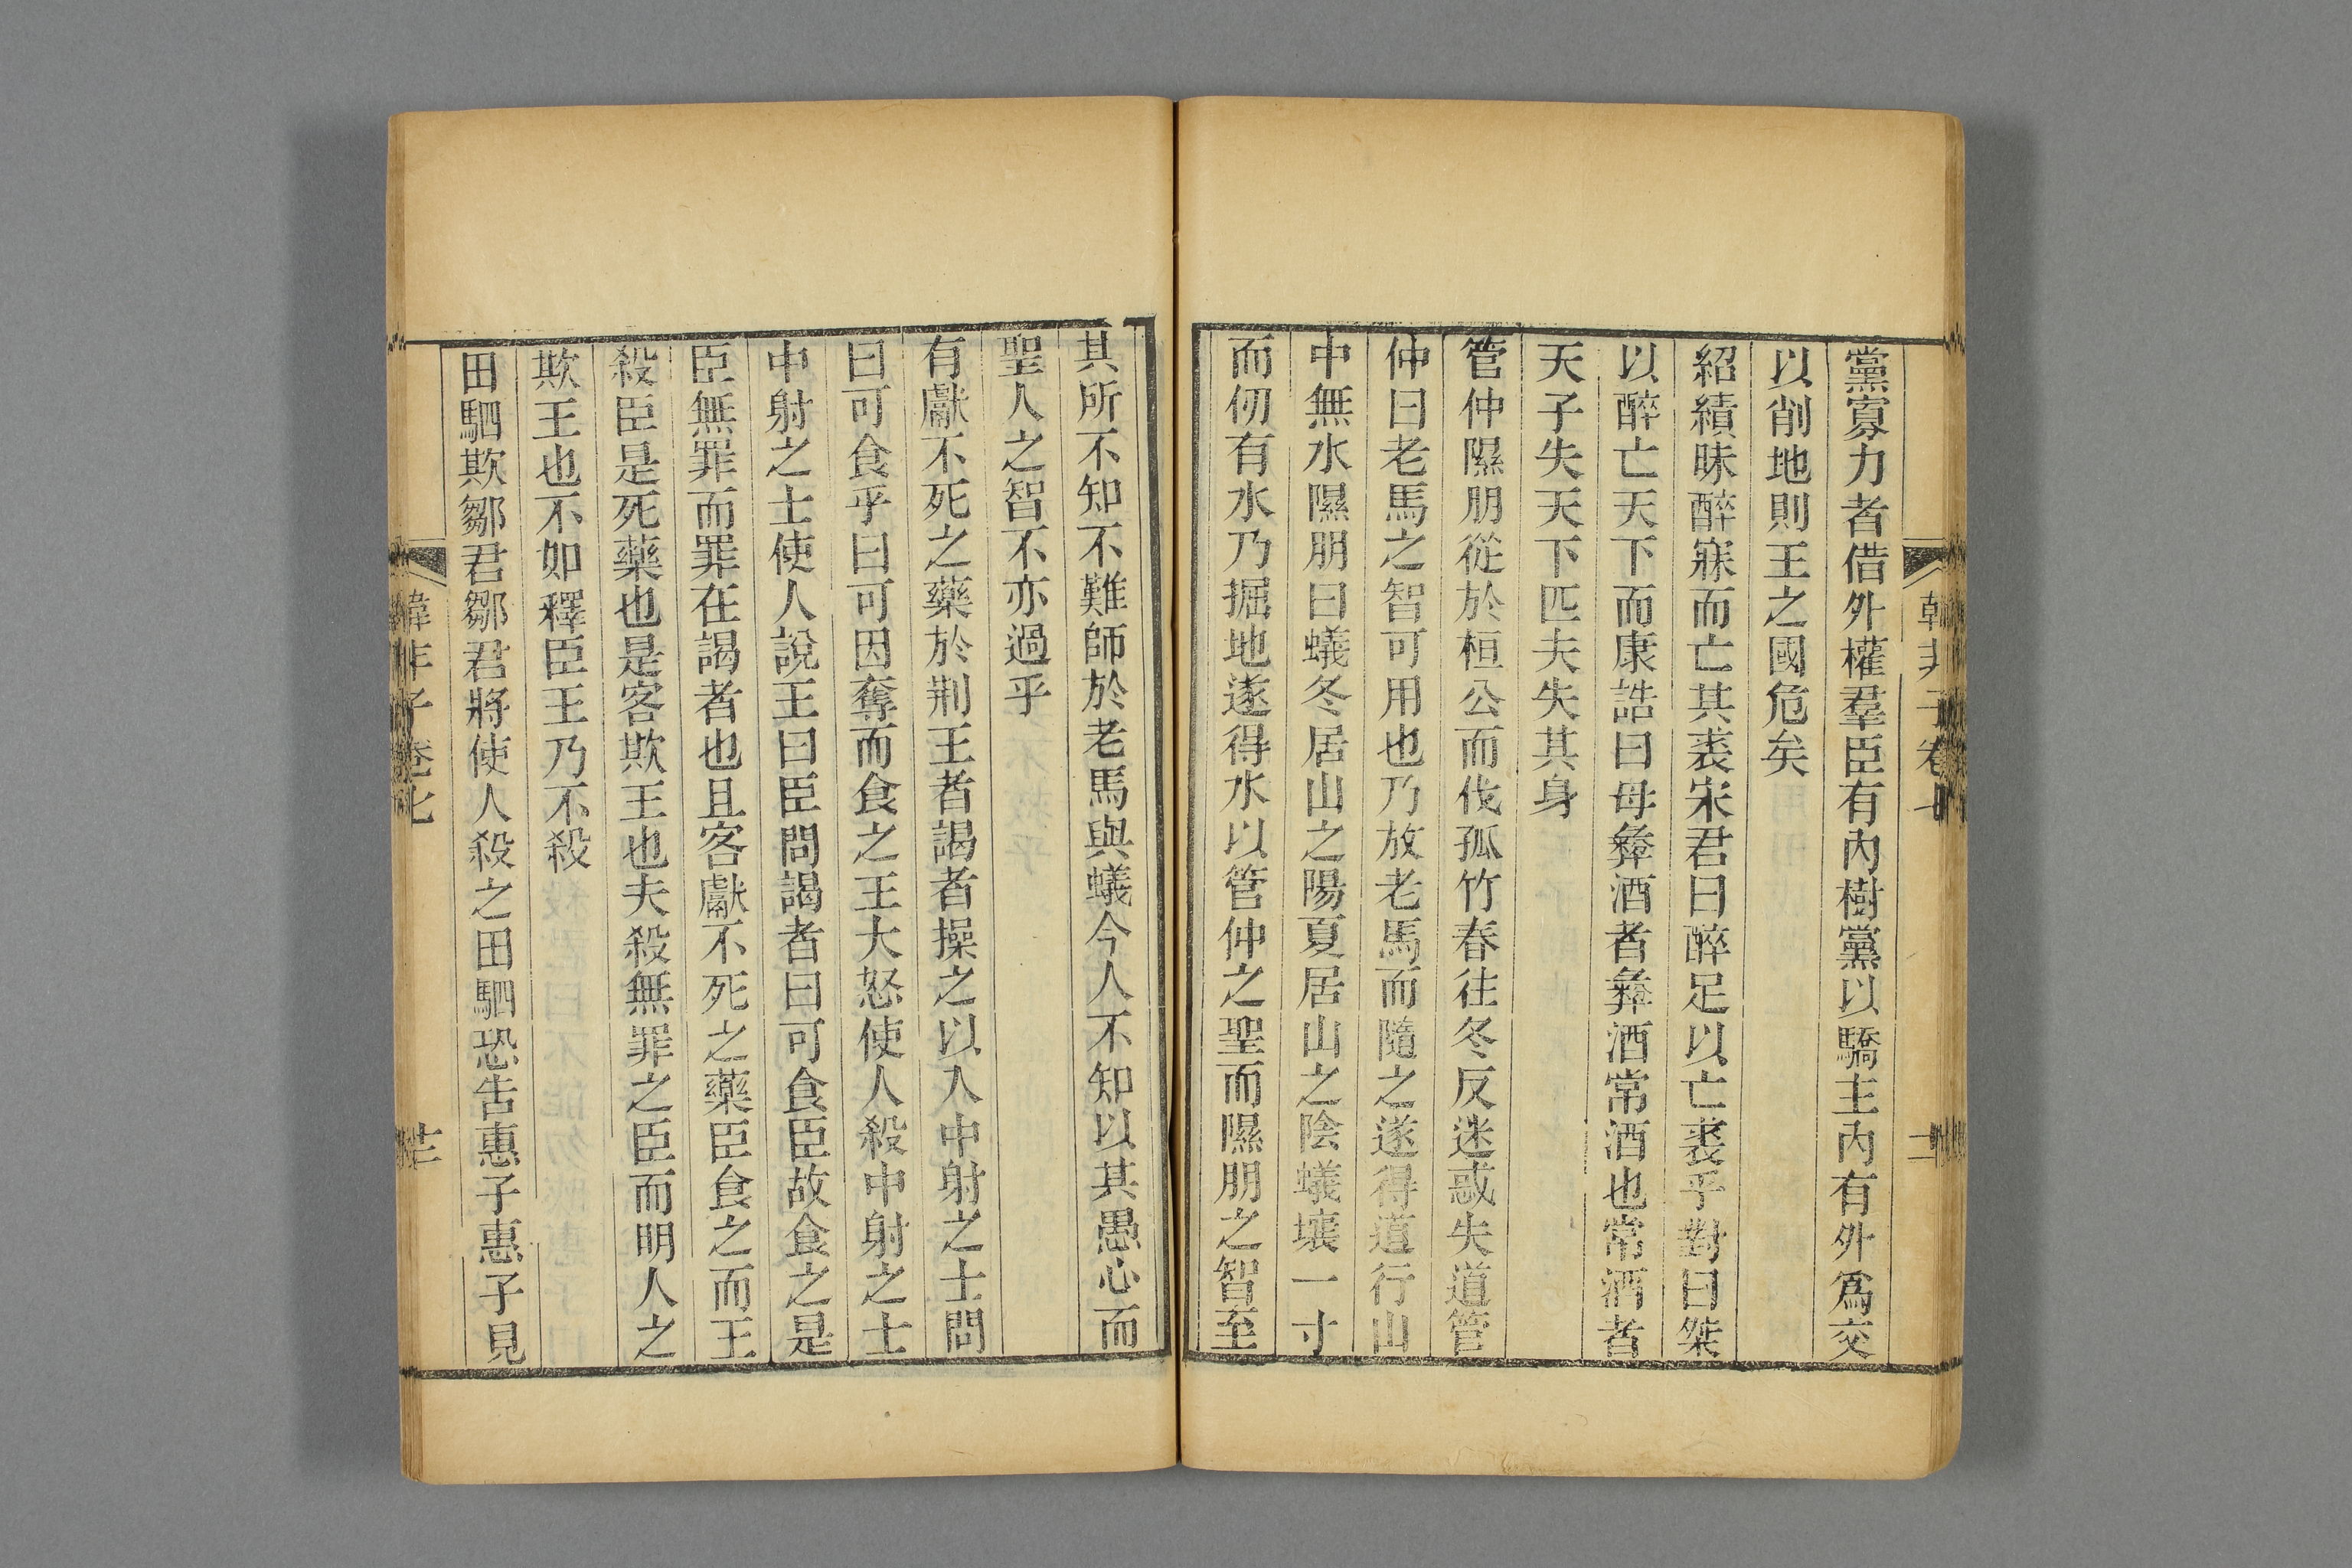 黨寡力者借外權羣臣有內樹黨以驕主內有外爲交
以削地則王之國危矣
紹績昧醉寐而亡其裘宋君曰醉足以亡裘乎對曰桀
以醉亡天下而康誥曰毋彝酒者彝酒常酒也常酒者
天子失天下匹夫失其身
管仲隰朋從於桓公而伐孤竹春往冬反迷惑失道管
仲曰老馬之智可用也乃放老馬而隨之遂得道行山
中無水隰朋曰蟻冬居山之陽夏居山之陰蟻壤一寸
而仞有水乃掘地遂得水以管仲之聖而隰朋之智至
其所不知不難師於老馬與蟻今人不知以其愚心而
聖人之智不亦過乎
有獻不死之藥於荆王者謁者操之以入中射之士問
曰可食乎曰可因奪而食之王大怒使人殺中射之士
中射之士使人說王曰臣問謁者曰可食臣故食之是
臣無罪而罪在謁者也且客獻不死之藥臣食之而王
殺臣是死藥也是客欺王也夫殺無罪之臣而明人之
欺王也不如釋臣王乃不殺
田駟欺鄒君鄒君將使人殺之田駟恐告惠子惠子見
韓非子卷七